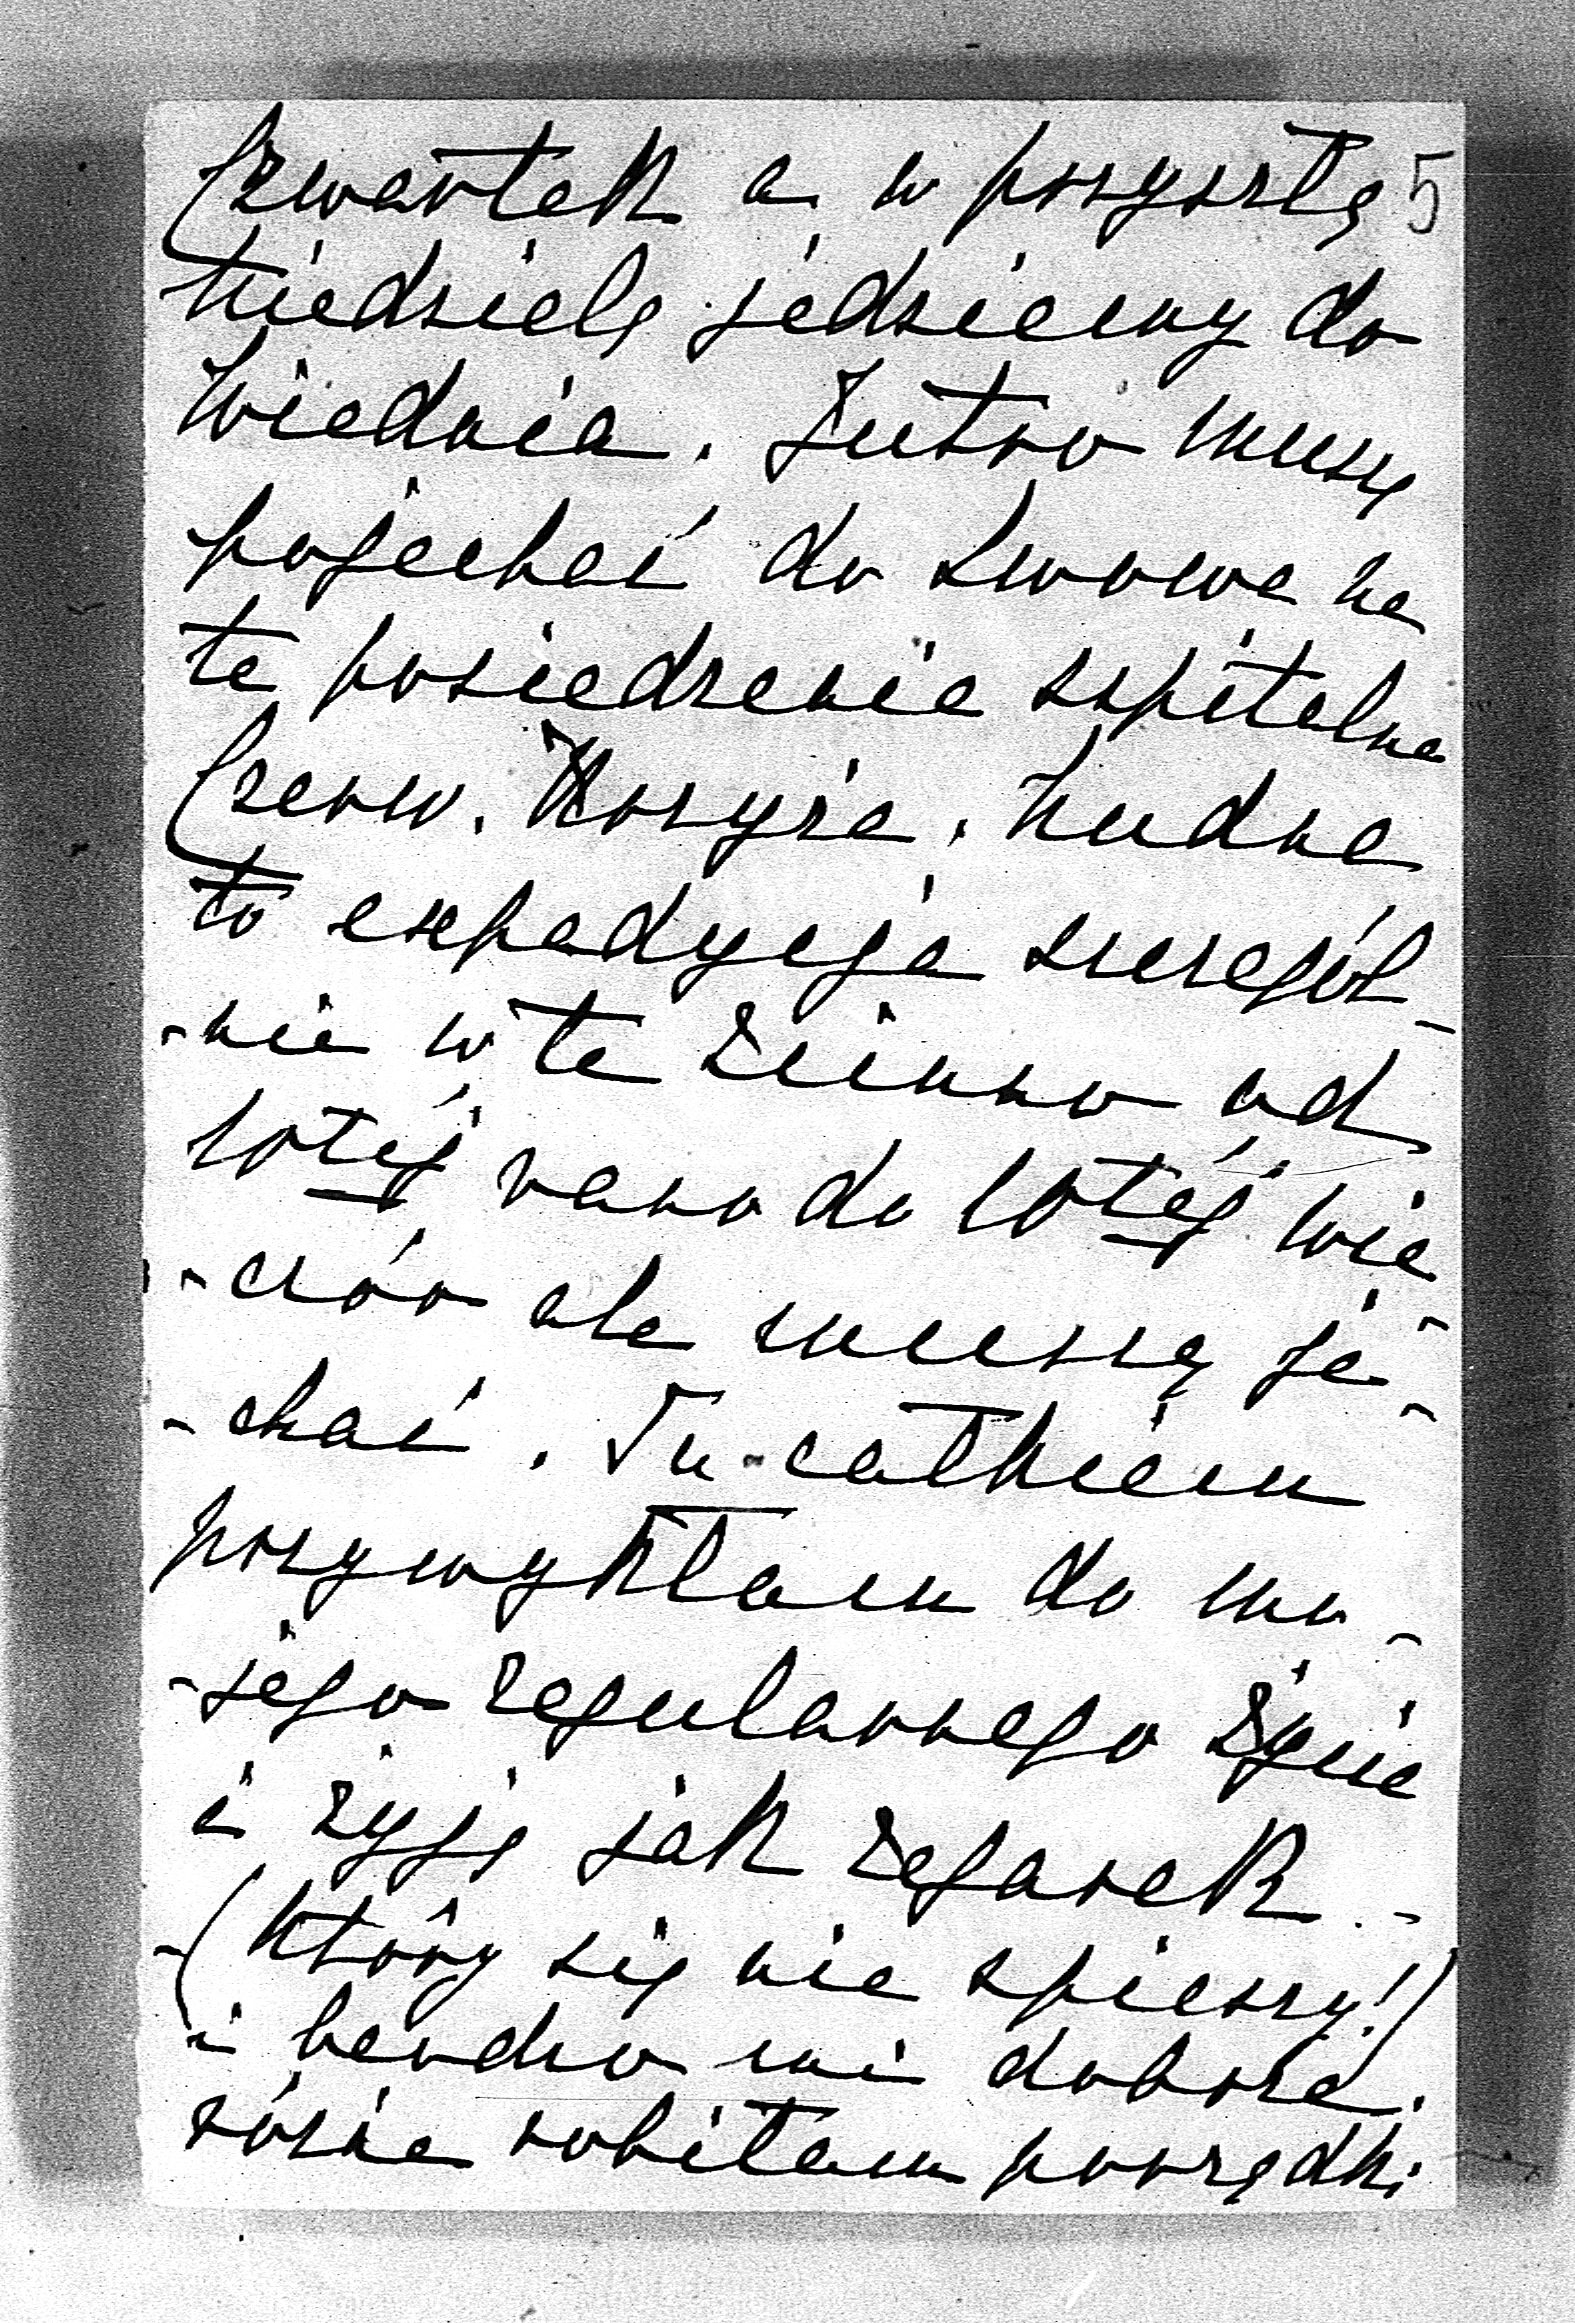 Czwartek a w przyszłą 5
niedzielę jedziemy do
Wiednia. Jutro muszę
pojechać do Lwowa na
te posiedzenie szpitalne
Czerw. Krzyża. Nudna
to expedycja szczegól-
-nie w te zimno od
10tej rano do 10tej wie
-czór ale muszę je-
-chać. Tu całkiem
przywykłam do mo-
-jego regularnego życia
i żyję jak zegarek -
-(który się nie spieszy!)
i bardzo mi dobrze.
różne robiłam porządki